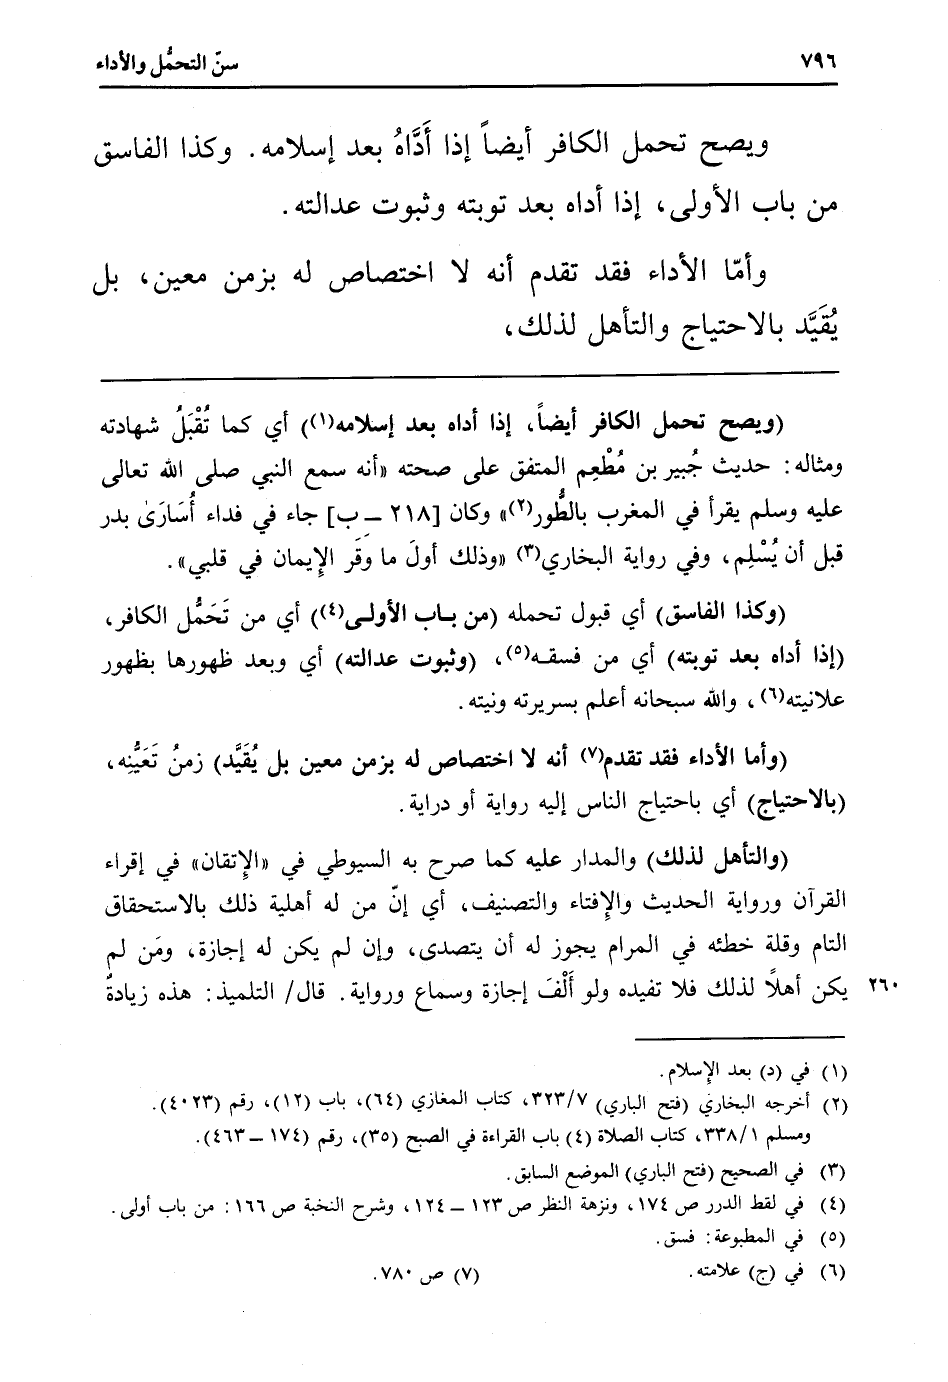 ٧٩٦ سنّ التحمُّل والأداء
ويصح تحمل الكافر أيضاً إذا أَدَّاهُ بعد إسلامه. وكذا الفاسق
من باب الأولى، إذا أداه بعد توبته وثبوت عدالته.
وأمّا الأداء فقد تقدم أنه لا اختصاص له بزمن معين، بل
يُقَيَّد بالاحتياج والتأهل لذلك،
(ويصح تحمل الكافر أيضاً، إذا أداه بعد إسلامه(١)) أي كما تُقْبَلُ شهادته
ومثاله: حديث جُبير بن مُطْعِم المتفق على صحته «أنه سمع النبي صلى الله تعالى
عليه وسلم يقرأ في المغرب بالطُّور(٢)» وكان [٢١٨ ــ ب] جاء في فداء أُسَارَىٰ بدر
قبل أن يُسْلِم، وفي رواية البخاري(٣) «وذلك أولَ ما وقَر الإيمان في قلبي».
(وكذا الفاسق) أي قبول تحمله (من بـاب الأولـى(٤)) أي من تَحَمُّل الكافر،
(إذا أداه بعد توبته) أي من فسقـه(٥)، (وثبوت عدالته) أي وبعد ظهورها بظهور
علانيته(٦)، والله سبحانه أعلم بسريرته ونيته.
(وأما الأداء فقد تقدم(٧) أنه لا اختصاص له بزمن معين بل يُقَيَّد) زمنُ تَعَيُّنِه،
(بالاحتياج) أي باحتياج الناس إليه رواية أو دراية.
(والتأهل لذلك) والمدار عليه كما صرح به السيوطي في «الإتقان» في إقراء
القرآن ورواية الحديث والإفتاء والتصنيف، أي إنّ من له أهلية ذلك بالاستحقاق
التام وقلة خطئه في المرام يجوز له أن يتصدى، وإن لم يكن له إجازة، ومَن لم
يكن أهلاً لذلك فلا تفيده ولو أَلْفَ إجازة وسماع ورواية. قال/ التلميذ: هذه زيادةٌ ٢٦٠
(١) في (د) بعد الإسلام.
(٢) أخرجه البخاري (فتح الباري) ٣٢٣/٧، كتاب المغازي (٦٤)، باب (١٢)، رقم (٤٠٢٣).
ومسلم ٣٣٨/١، كتاب الصلاة (٤) باب القراءة في الصبح (٣٥)، رقم (١٧٤ ــ ٤٦٣).
(٣) في الصحيح (فتح الباري) الموضع السابق.
(٤) في لقط الدرر ص ١٧٤، ونزهة النظر ص ١٢٣ ــ ١٢٤، وشرح النخبة ص ١٦٦: من باب أولى.
(٥) في المطبوعة: فسق.
(٦) في (ج) علامته. (٧) ص ٧٨٠.